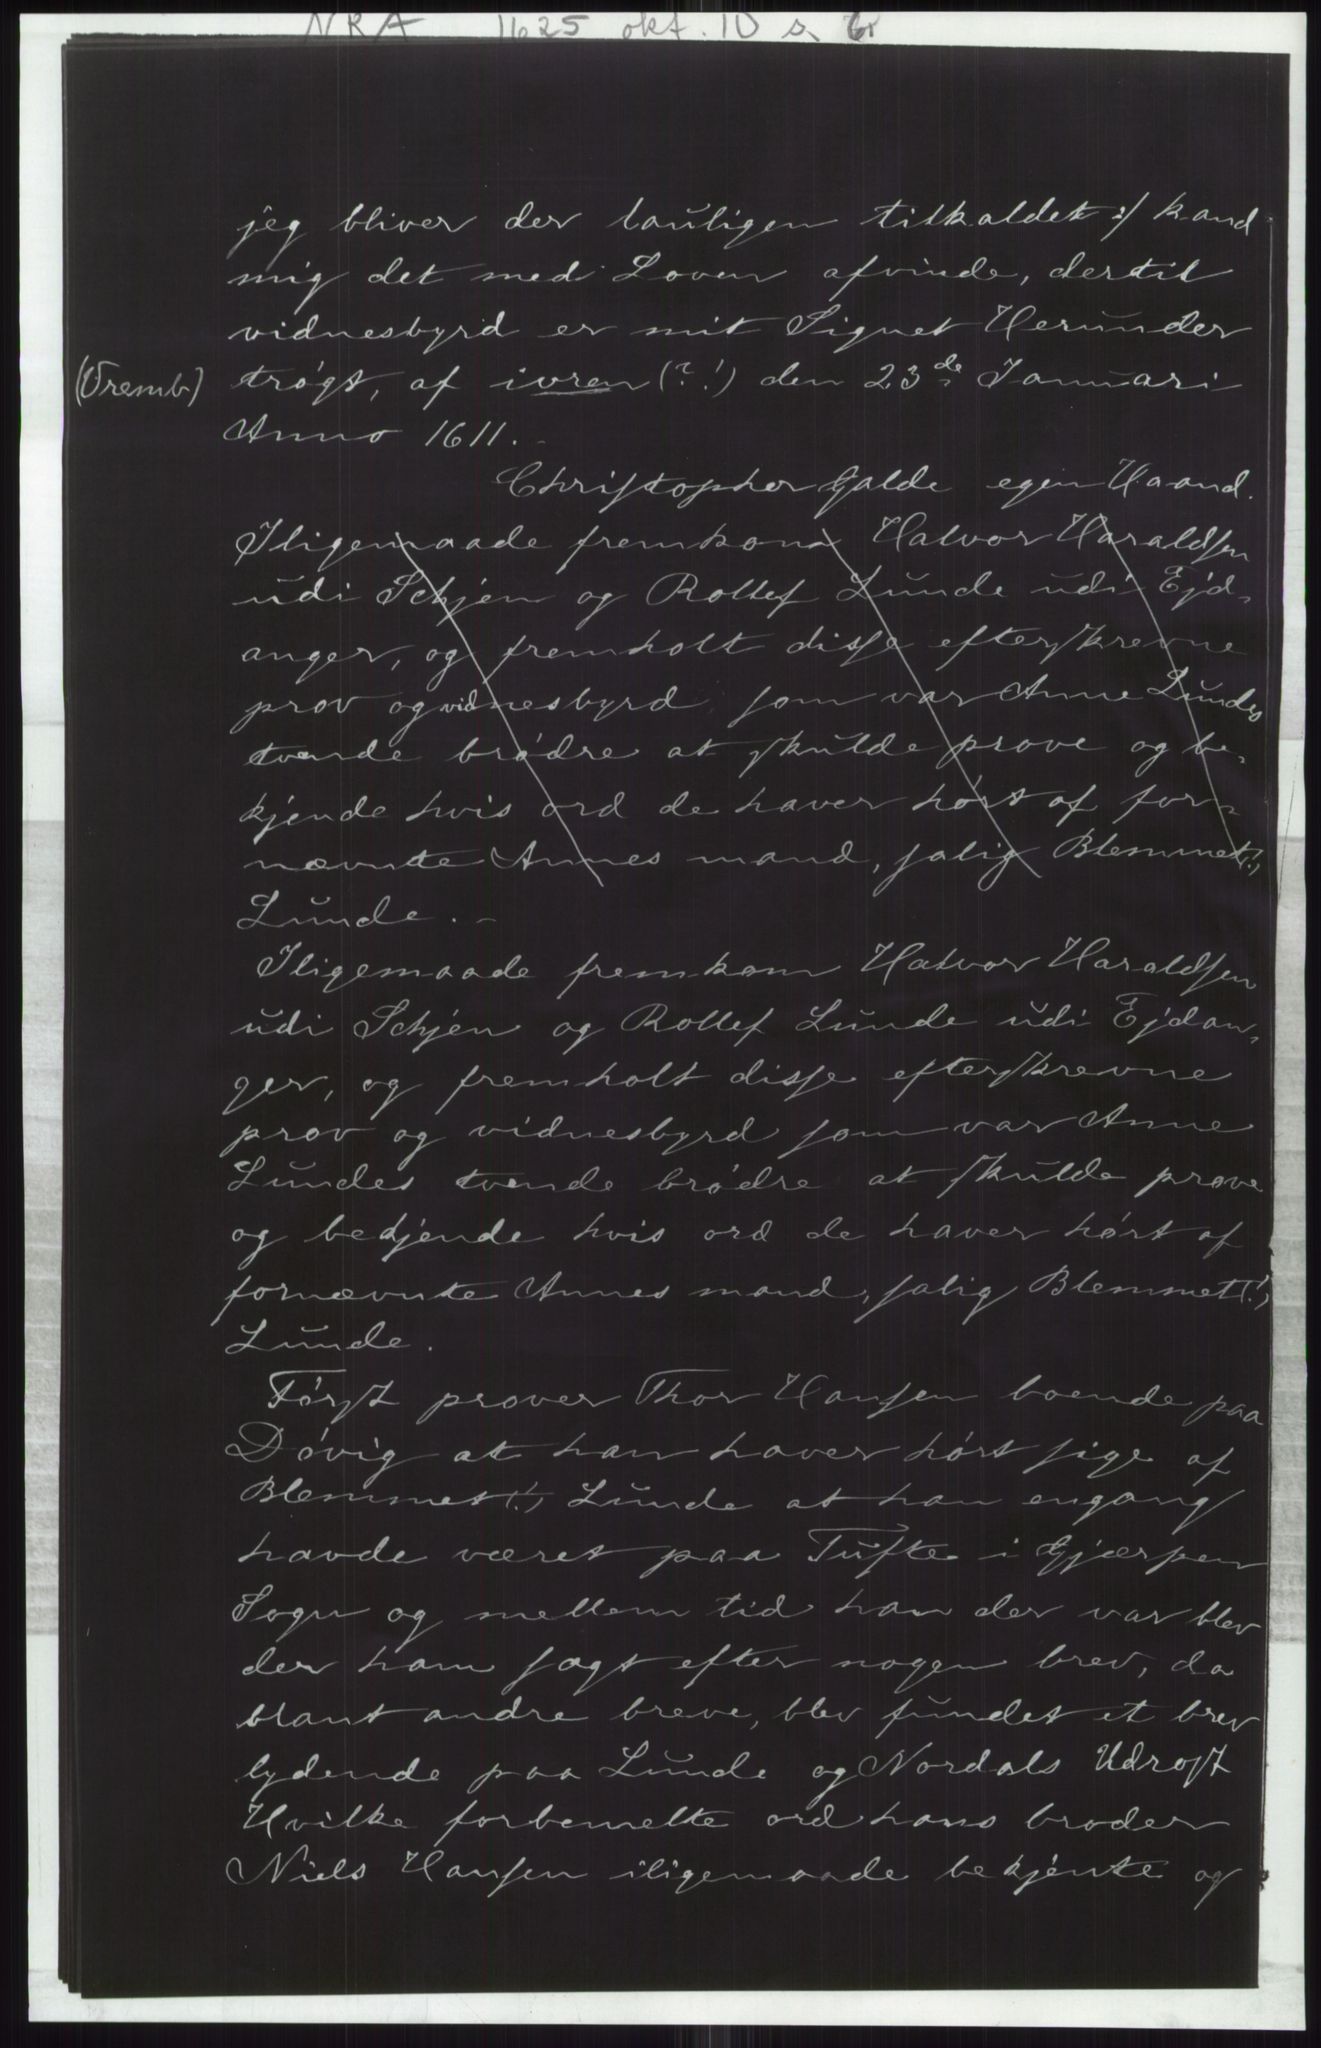 NRA 1625 okt. 10 s. 6
jeg bliver der lauligen tilkaldet :/ kand
mig det med Loven afvinde, dertil
vidnesbyrd er mit Signet Herunder
(Vremb) trógt, af ivren (?!) den 23de Januari
Anno 1611.
Christopher Galde egen Haand.
Iligemaade fremkom Halvor Haraldsen
udi Schjen og Rollef Lunde udi Ejd-
anger, og fremholt disse efterskrevne
prov og vidnesbyrd som var Anne Lundes
tvende brødre at skulde prove og be-
kjende hvis ord de haver hørt af for-
nævnte Annes mand, salig Blemmet (!)
Lunde. -
Iligemaade fremkom Halvor Haraldsen
udi Schjen og Rollef Lunde udi Ejdan-
ger, og fremholt disse efterskrevne
prov og vidnesbyrd som var Anne
Lundes tvende brødre at skulde prove
og bekjende hvis ord de haver hørt af
fornævnte Annes mand, salig Blemmet (!)
Lunde.
Først prover Thor Hansen boende paa
Døvig at han haver hørt sige af
Blemmet (!) Lunde at han engang
havde været paa Tufte i Gjærpen
Sogn og mellem tid han der var blev
der ham sagt efter nogen brev, da
blant andre breve, blev fundet et brev
lydende paa Lunde og Nordals Udrost
Hvilke forbemelte ord hans broder
Niels Hansen iligemaade bekjente og